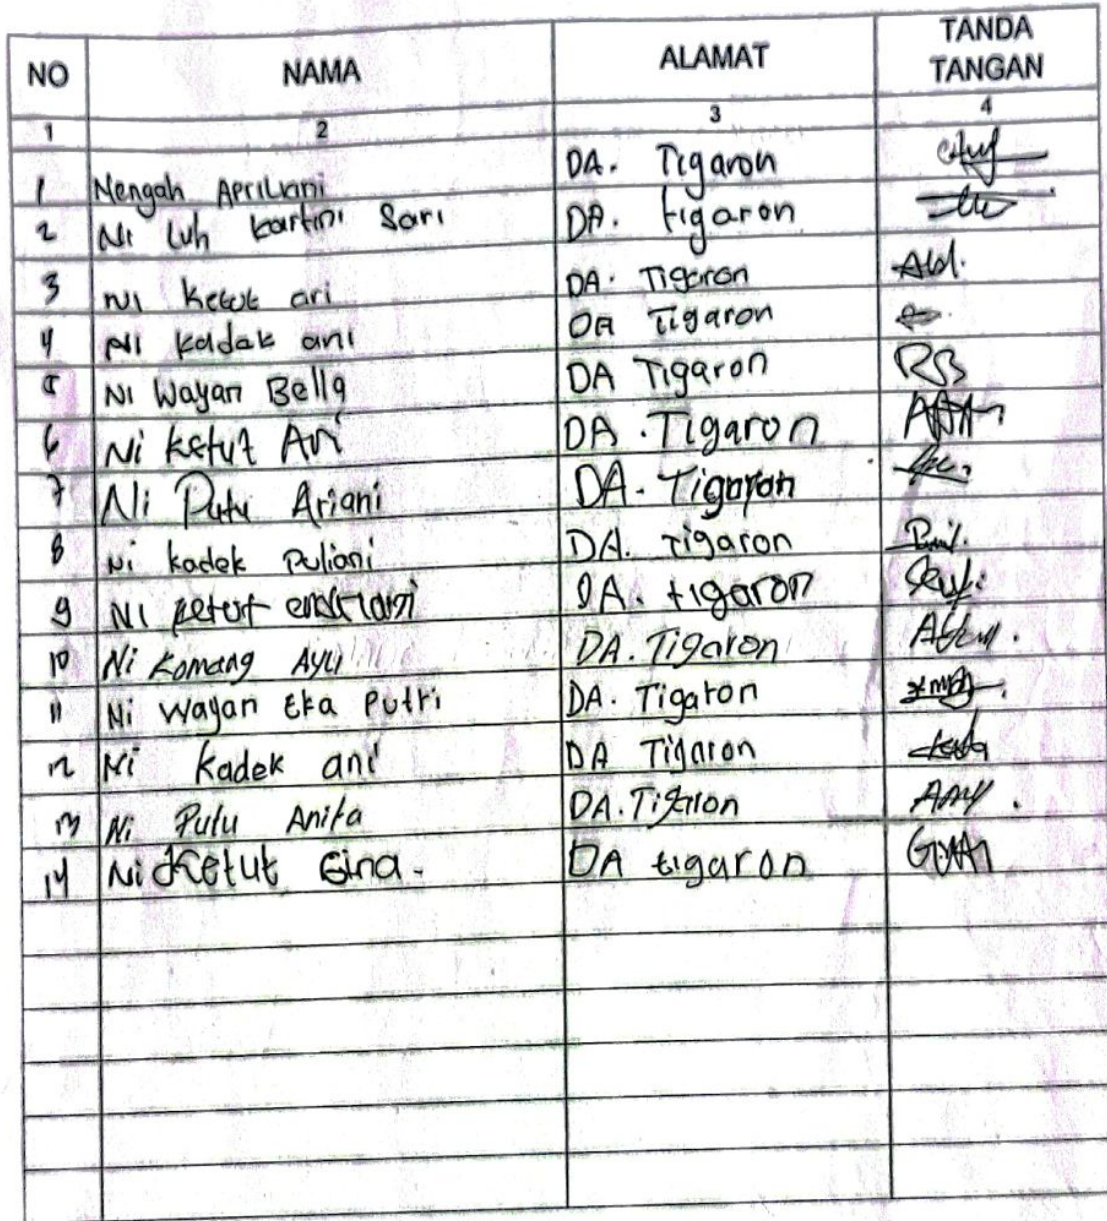 NO NAMA ALAMAT TANDA TANGAN
1 2 3 4
1 Nengah Apriliani DA. Tigaron
2 Ni Luh kartini Sari DA. tigaron
3 Ni ketut ari DA. Tigaron
4 Ni kadek ani DA Tigaron
5 Ni Wayan Bella DA Tigaron
6 Ni ketut Ari DA. Tigaron
7 Ni Putu Ariani DA. Tigaron
8 Ni kadek Puliani DA. Tigaron
9 NI ketut DA. tigaron
10 Ni Komang Ayu DA. Tigaron
11 Ni Wayan Eka Putri DA. Tigaron
12 Ni kadek ani DA Tigaron
13 Ni Putu Anita DA. Tigaron
14 Ni Ketut Gina. DA tigaron